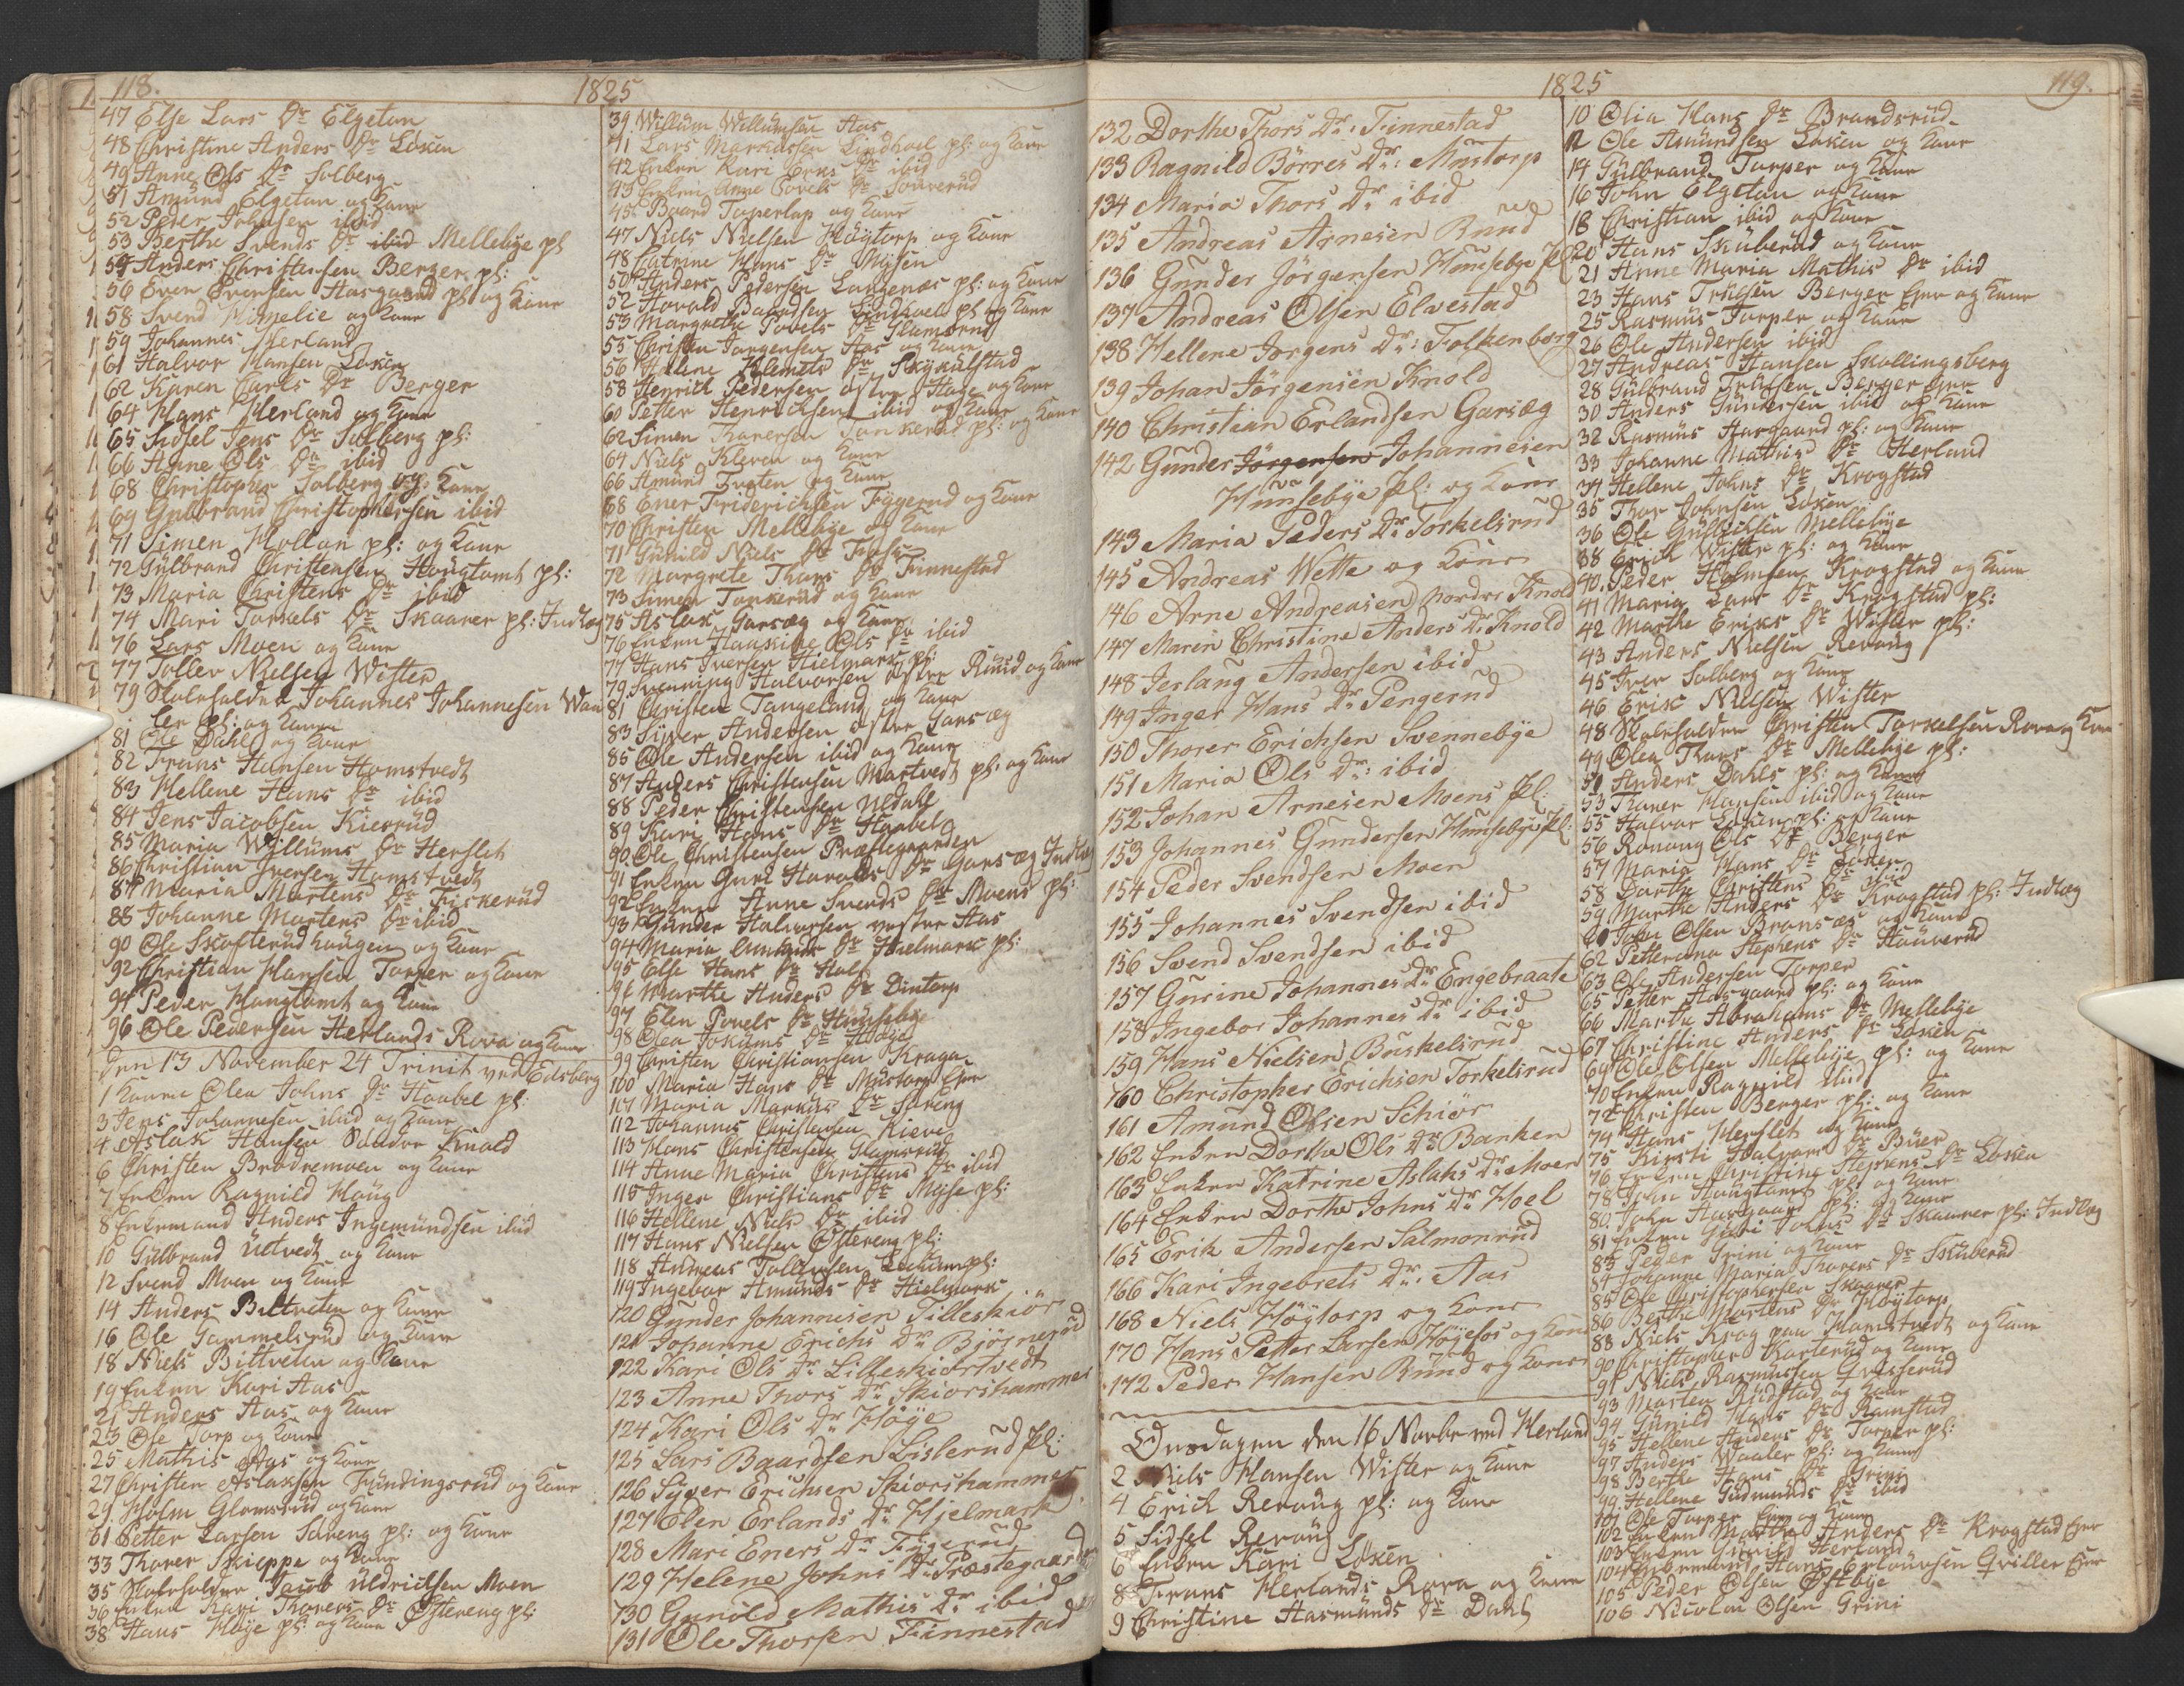 118.
1825
47 Else Lars Dr Elgetun
48 Christine Anders Dr Løken
49 Anne Ols Dr Solberg
51 Amund Elgetun og Kone
52 Peder Johnsen ibid
53 Berthe Svends Dr ibid Mellebye pl
54 Anders Christensen Berger pl:
56 Even Evensen Aasgaard pl og Kone
58 Svend Himelie og Kone
59 Johannes Herland
61 Halvor Hansen Løken
62 Karen Carls Dr Berger
64 Hans Herland og Kone
65 Sidsel Jens Dr Solberg pl:
66 Anne Ols Dr ibid
68 Christopher Solberg og Kone
69 Gulbrand Christophersen ibid
71 Simen Mollan pl: og Kone
72 Gulbrand Christensen Hougtomt pl:
73 Maria Christens Dr ibid
74 Mari Torkels Dr Skaarer pl: Indlæg
76 Lars Moen og Kone
77 Toller Nielsen Wister
79 Stolesolder Johannes Johannesen Waa
ler pl: og Kone
81 Ole Dahl og Kone
82 Frans Hansen Homstvedt
83 Hellene Hans Dr ibid
84 Jens Jacobsen Kiesrud
85 Maria Willums Dr Herslet
86 Christian Iversen Homstvedt
87 Maria Mortens Dr Fiskerud
88 Johanne Mortens Dr ibid
90 Ole Skofterudhaugen og Kone
92 Christian Hansen Torper og Kone
94 Peder Hougtomt og Kone
96 Ole Pedersen Herlands Rova og Kone
Den 13 November 24 Trinit ved Eidsberg
1 Konen Olea Johns Dr Haabel pl:
3 Jens Johannesen ibid og Kone
4 Aslak Hansen Søndre Knold
6 Christen Brødremoen og Kone
7 Enken Ragnild Houg
8 Enkemand Anders Ingemundsen ibid
10 Gulbrand Ultvedt og Kone
12 Svend Moen og Kone
14 Anders Bittveten og Kone
16 Ole Gammelsrud og Kone
18 Niels Bittveten og Kone
19 Enken Kari Aas
21 Anders Aas og Kone
23 Ole Torp og Kone
25 Mathis Aas og Kone
27 Christen Aslaksen Fundingsrud og Kone
29 Holm Glomsrud og Kone
31 Petter Larsen Sæteng pl: og Kone
33 Thorer Skieppe og Kone
35 Stolesolder Jacob Uldricksen Moen
36 Enken Kari Thorers Dr Østereng pl:
38 Hans Høje pl: og Kone
39 Willum Willumsen Aas
41 Lars Markussen Lindhoel pl: og Kone
42 Enken Kari Eriks Dr ibid
43 Enken Anne Povels Dr Souverud
45 Baard Toperlap og Kone
47 Niels Nielsen Høytorp og Kone
48 Catrine Hans Dr Mysen
50 Anders Pedersen Langenæs pl: og Kone
52 Havold Baardsen Lindhoel pl og Kone
53 Margrethe Povels Dr Glamsrud
55 Christen Jørgensen Aas og Kone
56 Hellene Klemets Dr Skykulstad
58 Henrick Pedersen østre Hage og Kone
60 Petter Henricksen ibid og Kone
62 Simen Thorersen Tonkerud pl: og Kone
64 Niels Kleven og Kone
66 Amund Tveten og Kone
68 Ener Friderichsen Fygerud og Kone
70 Christen Mellebye og Kone
71 Gunild Niels Dr Fosse
72 Margrete Thors Dr Finnestad
73 Simen Tonkerud og Kone
75 Aslak Garsæg og Kone
76 Enken Haaskine Ols Dr ibid
77 Hans Iversen Hielmark pl:
79 Svenning Halvorsen østre Ruud og Kone
81 Christen Tangeland og Kone
83 Syver Andersen østre Garsæg
85 Ole Andersen ibid og Kone
87 Anders Christensen Martvedt pl: og Kone
88 Peder Christensen Nedahl
89 Kari Hans Dr Haabel
90 Ole Christensen Præstegaarden
91 Enken Guri Haralds Dr Garsæg Indlæg
92 Enken Anne Svends Dr Moens pl:
93 Gunder Halvorsen vestre Aas
94 Maria Amunds Dr Hielmark pl:
95 Else Hans Dr Hoel
96 Marthe Anders Dr Dintorp
97 Elen Povels Dr Hunsebye
98 Olea Jokums Dr Høye
99 Christen Christiansen Kraga
100 Maria Hans Dr Mustorp Eier
111 Maria Markus Dr Sæteng
112 Johannes Christensen Kieve
113 Hans Christensen Glamsrud
114 Anne Maria Christens Dr ibid
115 Inger Christians Dr Myse pl:
116 Hellene Niels Dr ibid
117 Hans Nielsen Østereng pl:
118 Andreas Tollefsen Lekum pl:
119 Ingebor Amunds Dr Hielmark
120 Gunder Johannesen Tilleskiør
121 Johanne Erichs Dr Bjørnerud
122 Kari Ols Dr Lilleskiørtvedt
123 Anne Thors Dr Skiorshammer
124 Kari Ols Dr Høye
125 Lars Baardsen Lislerud Pl:
126 Syver Erichsen Skiorshammer
127 Elen Erlands Dr Hjelmark
128 Mari Eners Dr Fygerud
129 Helene Johns Dr Præstegaarden
130 Gunild Mathis Dr ibid
131 Ole Thorsen Finnestad
1825
119.
132 Dorthe Thors Dr: Finnestad
133 Ragnild Børres Dr: Mustorp
134 Maria Thors Dr ibid
135 Andreas Arnesen Ruud
136 Gunder Jørgensen Hunsebye Pl
137 Andreas Olsen Elvestad
138 Hellene Jorgens Dr: Folkenborg
139 Johan Jørgensen Knold
140 Christian Erlandsen Garsæg
142 Gunder Jørgensen Johannesen
Hunsebye Pl: og Kone
143 Maria Peders Dr Torkelsrud
145 Andreas Wette og Kone
146 Arne Andreasen nordre Knold
147 Maren Christine Anders Dr Knold
148 Jerlang Andersen ibid
149 Inger Hans Dr Pengerud
150 Thorer Erichsen Svennebye
151 Maria Ols Dr: ibid
152 Johan Arnesen Moens Pl:
153 Johannes Gundersen Hunsebye Pl:
154 Peder Svendsen Moen
155 Johannes Svendsen ibid
156 Svend Svendsen ibid
157 Gurine Johannes Dr Engebraate
158 Ingebor Johannes Dr ibid
159 Hans Nielsen Buskelsrud
160 Christopher Erichsen Torkelsrud
161 Amund Olsen Schiør
162 Enken Dorthe Ols Dr Banken
163 Enken Katrine Aslaks Dr Moen
164 Enken Dorthe Johns Dr Hoel
165 Erik Andersen Salmonrud
166 Kari Ingebrets Dr: Aas
168 Niels Høytorp og Kone
170 Hans Petter Larsen Høyefos og Kone
172 Peder Hansen Ruud og Kone
Onsdagen den 16 Novbr ved Herland
2 Niels Hansen Wister og Kone
4 Erich Revoug pl: og Kone
5 Sidsel Revoug
6 Enken Kari Løken
8 Frans Herlands Rova og Kone
9 Christine Aasmunds Dr Dahl
10 Olia Hans Dr Brandsrud
12 Ole Amundsen Løken og Kone
14 Gulbrand Torper og Kone
16 John Elgetun og Kone
18 Christian ibid og Kone
20 Hans Skuberud og Kone
21 Anne Maria Mathis Dr ibid
23 Hans Trulsen Berger Eier og Kone
25 Rasmus Torper og Kone
26 Ole Andersen ibid
27 Andreas Hansen Skollingsberg
28 Gulbrand Trulsen Berger Eier
30 Anders Gundersen ibid og Kone
32 Rasmus Aasgaard pl: og Kone
33 Johanne Mathis Dr Herland
34 Hellene Johns Dr Krogstad
35 Thor Johnsen Løken
36 Ole Gulbrandsen Mellebye
38 Erich Wister pl: og Kone
40 Peder Holmsen Krogstad og Kone
41 Maria Lars Dr Krogstad pl:
42 Marthe Eriks Dr Wister pl:
43 Anders Nielsen Revoug
45 Iver Solberg og Kone
46 Erik Nielsen Wister
48 Stolesolder Christen Torkelsen Rova og Kone
49 Olea Thors Dr Mellebye pl:
51 Anders Dahls pl: og Kone
53 Thorer Hansen ibid og Kone
55 Halvor Løken pl: og Kone
56 Ronoug Ols Dr Berger
57 Maria Hans Dr Løken
58 Dorthe Christens Dr ibid
59 Marthe Anders Dr Krogstad pl: Indlæg
61 John Olsen Bronsæs og Kone
62 Petterana Stephens Dr Houverud
63 Ole Andersen Torper
65 Petter Aasgaard pl: og Kone
66 Marthe Abrahams Dr Mellebye
67 Christine Anders Dr Løken
69 Ole Olsen Mellebye pl: og Kone
70 Enken Ragnild ibid
72 Christen Berger pl: og Kone
74 Hans Herslet og Kone
75 Kirsti Halvors Dr Buer
76 Enken Christine Stephens Dr Løken
78 John Hougtomt pl: og Kone
80 John Aasgaard pl: og Kone
81 Enken Guri Johns Dr Skaarer pl: Indlæg
83 Peder Grini og Kone
84 Johanne Maria Thorers Dr Skuberud
85 Ole Christophersen Skaarer
86 Berthe Mortens Dr Høytorp
88 Niels Krog paa Homstvedt og Kone
90 Christopher Korterud og Kone
91 Niels Rasmussen Grasserud
93 Morten Ridstad og Kone
94 Gunild Hans Dr Ramstad
95 Hellene Anders Dr Torper pl:
97 Anders Waaler pl: og Kone
98 Berthe Hans Dr Grini
99 Hellene Gudmunds Dr ibid
101 Ole Torper Eier og Kone
102 Enken Marthe Anders Dr Krogstad Eier
103 Enken Gunild Herland
104 Enkemand Hans Erlandsen Qviller Eier
105 Peder Olsen Østbye
106 Nicolai Olsen Grini